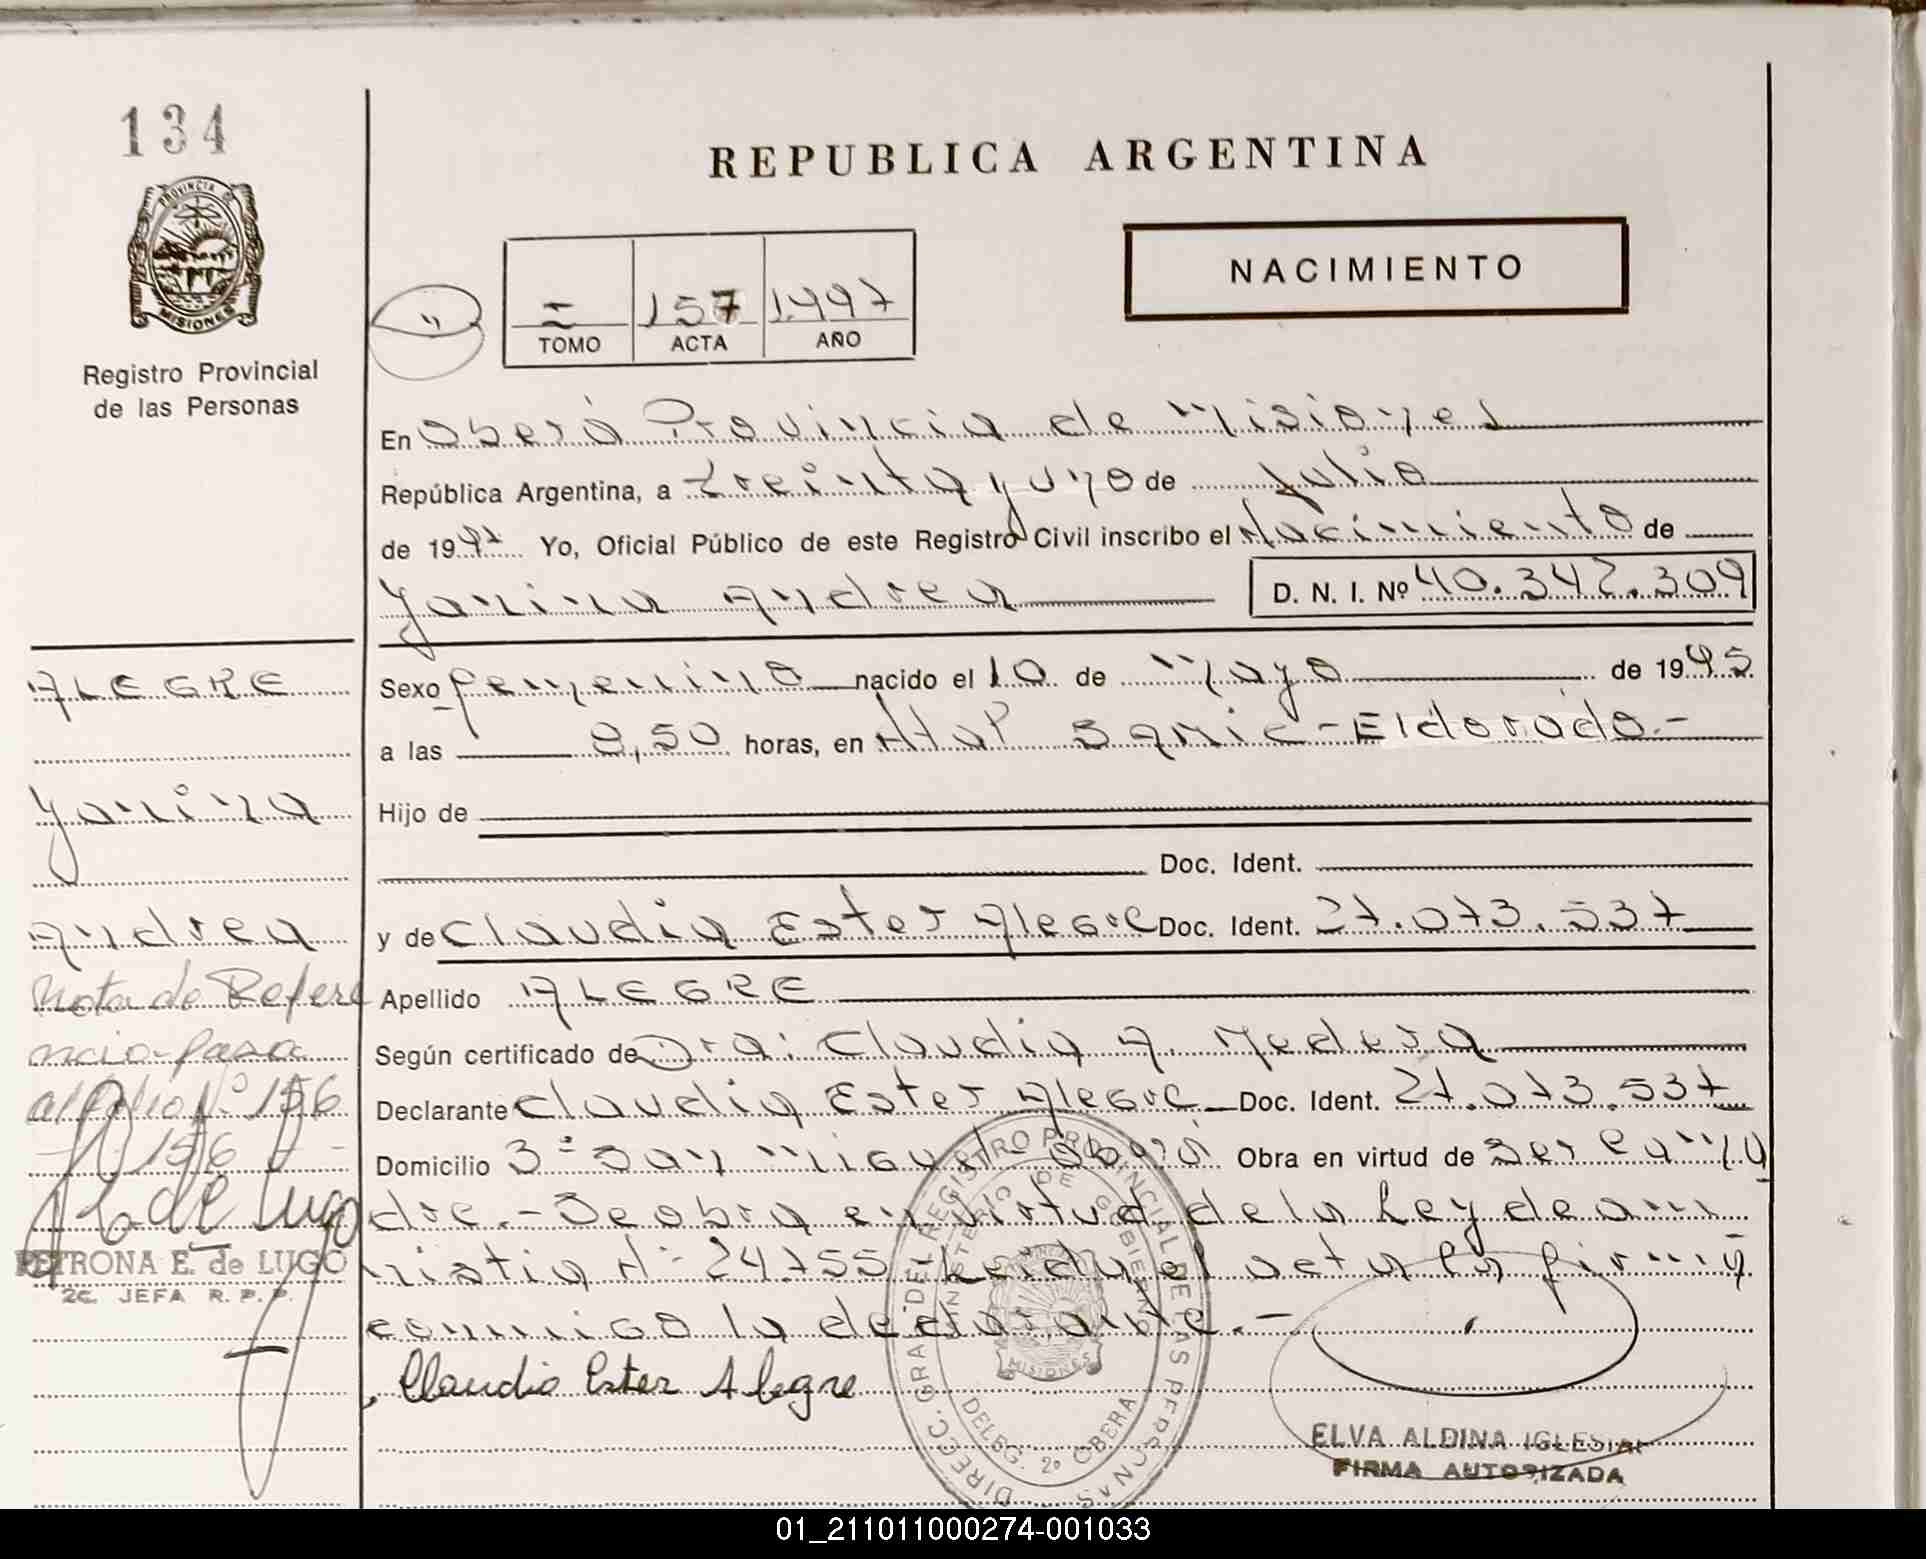 134
PROVINCIA DE
MISIONES
Registro Provincial
de las Personas
REPUBLICA ARGENTINA
NACIMIENTO
= 157 1.997
TOMO ACTA AÑO
En Oberá Provincia de Misiones
República Argentina, a treinta y uno de julio
de 1997 Yo, Oficial Público de este Registro Civil inscribo el Nacimiento de
Yanina Andrea D. N. I. Nº 40.342.309
Sexo femenino nacido el 10 de Mayo de 1995
a las 8,50 horas, en Htal Samic - Eldorado.-
Hijo de
Doc. Ident.
y de Claudia Ester Alegre Doc. Ident. 27.073.537
Apellido ALEGRE
Según certificado de Dra: Claudia A. Medera
Declarante Claudia Ester Alegre Doc. Ident. 27.073.537
Domicilio 3º San Miguel Oberá Obra en virtud de ser la ma
dre.- Se obra en virtud de la Ley de am
nistia Nº 24.755 Leida el acta la firma
conmigo la declarante.-
Claudia Ester Alegre
ELVA ALDINA IGLESIAS
FIRMA AUTORIZADA
DIREC. GRAL. DEL REGISTRO PROVINCIAL DE LAS PERSONAS
MINISTERIO DE GOBIERNO
MISIONES
DELEG. 2º OBERA
ALEGRE
Yanina
Andrea
Nota de Refere
ncia-pasa
al folio Nº 156
156
PETRONA E. de LUGO
2E. JEFA R. P. P.
01_211011000274-001033